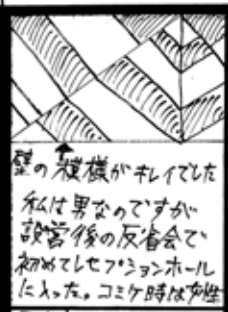 壁の模様がキレイでした
私は男なのですが
設営後の反省会で
初めてレセプションホール
に入った。コミケ時は女性